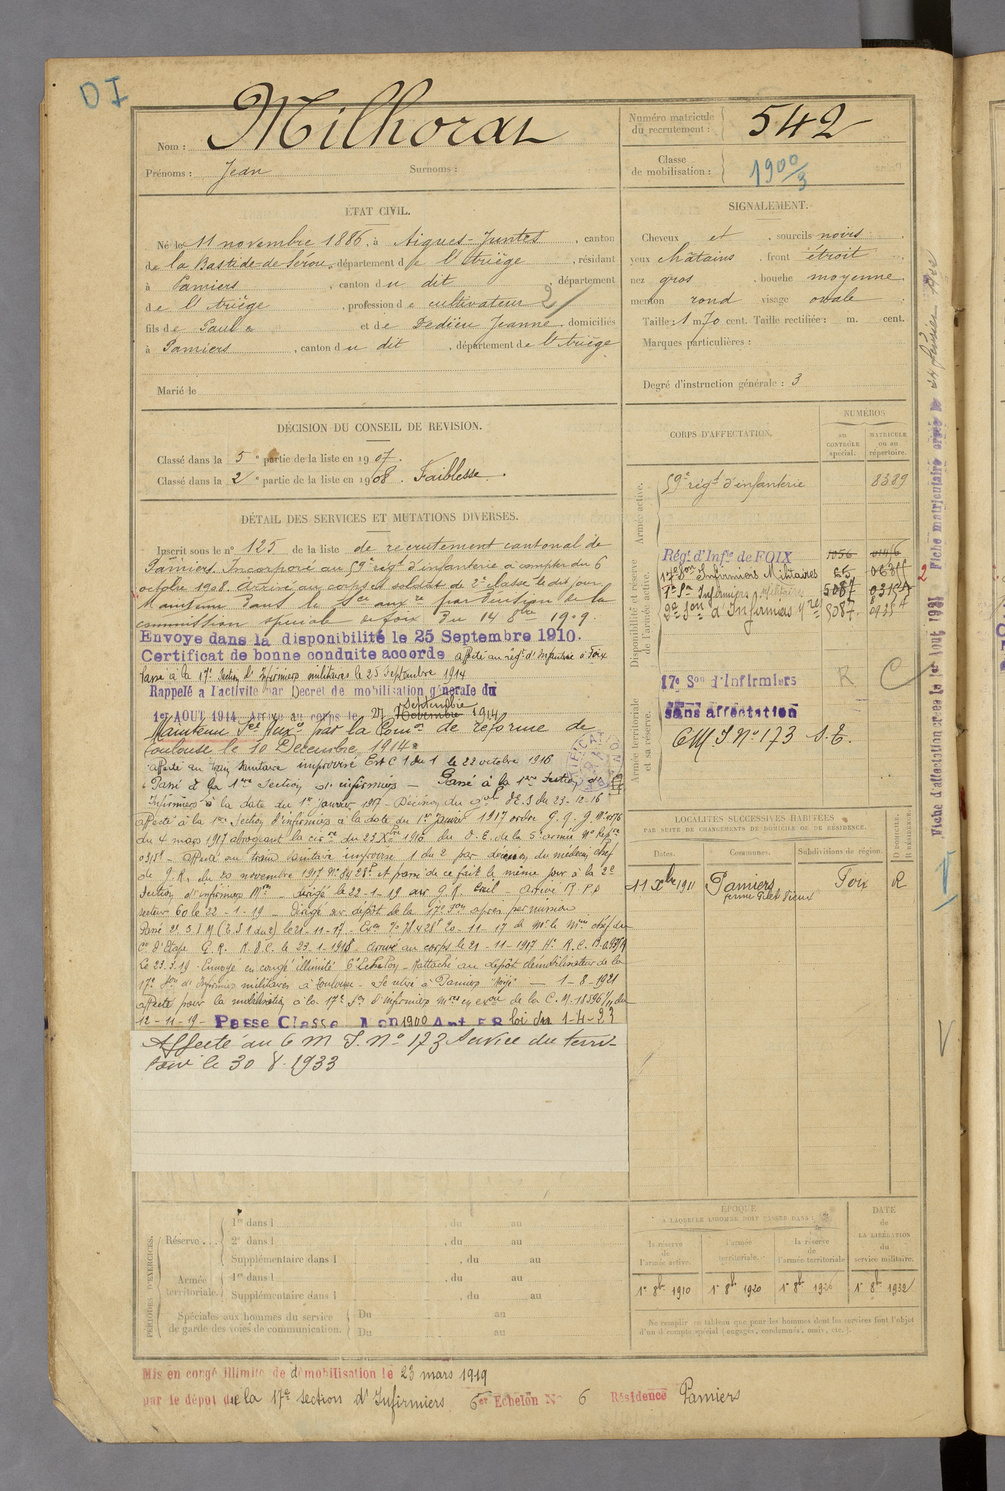 DI
Nom : Milhorat
Prénoms : Jean Surnoms :
Numéro matricule du recrutement : 542
Classe de mobilisation : 1900/3
ÉTAT CIVIL.
Né le 11 novembre 1886, à Aigues-Juntes, canton
de la Bastide-de-Sérou, département de l'Ariège, résidant
à Pamiers, canton du dit, département
de l'Ariège, profession de cultivateur 2/
fils de Paul et de Dedieu Jeanne, domiciliés
à Pamiers, canton du dit, département de l'Ariège
Marié le
SIGNALEMENT.
Cheveux et sourcils noirs
yeux châtains, front étroit
nez gros, bouche moyenne
menton rond visage ovale
Taille : 1 m 70 cent. Taille rectifiée : m. cent.
Marques particulières :
Degré d'instruction générale : 3
DÉCISION DU CONSEIL DE REVISION.
Classé dans la 5e partie de la liste en 1907.
Classé dans la 2e partie de la liste en 1908. Faiblesse.
DÉTAIL DES SERVICES ET MUTATIONS DIVERSES.
Inscrit sous le n° 125 de la liste de recrutement cantonal de
Pamiers. Incorporé au 59e régt d'infanterie à compter du 6
octobre 1908. Arrivé au corps et soldat de 2e classe le dit jour
Maintenu dans le Sce auxre par décision de la
commission spéciale de Foix du 14 8bre 1909.
Envoyé dans la disponibilité le 25 Septembre 1910.
Certificat de bonne conduite accordé affecté au régt d'Infanterie de Foix
Passé à la 17e Section d'Infirmiers militaires le 25 septembre 1914
Rappelé à l'activité par Décret de mobilisation générale du
1er AOUT 1914. Arrivé au corps le 27 septembre Novembre 1914
Maintenu Sce Auxre par la Comon de réforme de
Toulouse le 10 Décembre 1914.
affecté au train sanitaire improvisé Est C 1 du 1 le 22 octobre 1916
Passé à la 1ère Section d'infirmiers — Passé à la 1ère Section d'
Infirmiers à la date du 1er Janvier 1917 - Décision du D.E.S du 23-12-16
affecté à la 1ère Section d'infirmiers à la date du 1er Janvier 1917 ordre G.Q.G.
du 4 mars 1917 abrogeant la du 23 Xbre 1916 du D.E. de la 5e armée
affecté au train sanitaire improvisé 1 du 2 par décision du médecin chef
de G.R. du 20 novembre 1917 N° 8428 et passé de ce fait le même jour à la 2e
Section d'infirmiers Mres dirigé le 22-1-19 sur G.R. Creil - arrivé
secteur 60 le 22-1-19 - Dirigé sur dépôt de la 17e Son après permission
Le 23-3-19 Envoyé en congé illimité 6e Echelon, Rattaché au dépôt démobilisateur de la
17e Son d'Infirmiers militaires à Toulouse - Se retire à Pamiers — 1-8-1921
affecté pour la mobilisation à la 17e Son d'infirmiers Mres en exon de la C.M.
12-11-19 - Passé Classe 1900 Art 58 loi du 1-4-23
Affecté au C M I. N° 173 Service du Terri-
toire le 30 8 1933
CORPS D'AFFECTATION.
NUMÉROS
au contrôle spécial.
matricule ou au répertoire.
Armée active.
59e régt d'infanterie 8389
Disponibilité et réserve de l'armée active.
Régt d'Infie de FOIX 1056
17e Son Infirmiers Militaires
1e Son Infirmiers Militaires 5087
2e Son d'Infirmiers Mres 5087
Armée territoriale et sa réserve.
17e Son d'Infirmiers R C
sans affectation
CM I N° 173 S.T.
LOCALITÉS SUCCESSIVES HABITÉES
PAR SUITE DE CHANGEMENTS DE DOMICILE OU DE RÉSIDENCE.
Dates. Communes. Subdivisions de région. D domicile. R résidence.
11 Xbre 1911 Pamiers Foix R
Fiche d'affectation créée le 1er Août 1921 Fiche matriculaire créée le
PÉRIODES D'EXERCICES.
Réserve...
1re dans l du au
2e dans l du au
Supplémentaire dans l du au
Armée territoriale.
1re dans l du au
Supplémentaire dans l du au
Spéciales aux hommes du service de garde des voies de communication.
Du au
Du au
ÉPOQUE
À LAQUELLE L'HOMME DOIT PASSER DANS :
la réserve de l'armée active.
l'armée territoriale.
la réserve de l'armée territoriale
DATE de LA LIBÉRATION du service militaire.
1er 8bre 1910 1er 8bre 1920 1er 8bre 1926 1er 8bre 1932
Ne remplir ce tableau que pour les hommes dont les services font l'objet
d'un décompte spécial (engagés, condamnés, omis, etc.).
Mis en congé illimité de démobilisation le 23 mars 1919
par le dépôt de la 17e section d'Infirmiers 6er Echelon N° 6 Résidence Pamiers